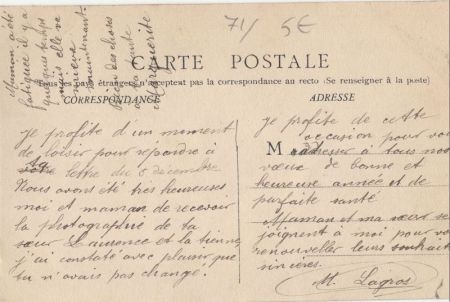 71/ 5€
Maman a été
fatiguée il y a
quelques temps
mais elle va
mieux
maintenant.
bien des choses
à la tante
Marguerite
CARTE POSTALE
pays étrangers n'acceptent pas la correspondance au recto (Se renseigner à la poste)
CORRESPONDANCE
Je profite d'un moment
de loisir pour répondre à
ta lettre du 8 décembre
Nous avons été très heureuses
moi et maman de recevoir
la photographie de ta
sœur Laurence et la tienne,
j'ai constaté avec plaisir que
tu n'avais pas changé!
ADRESSE
Je profite de cette
occasion pour vous
M adresser à tous nos
vœux de bonne et
heureuse année et de
parfaite santé
Maman et ma sœur se
joignent à moi pour vous
renouveller leurs souhaits
sincères.
M. Lagros